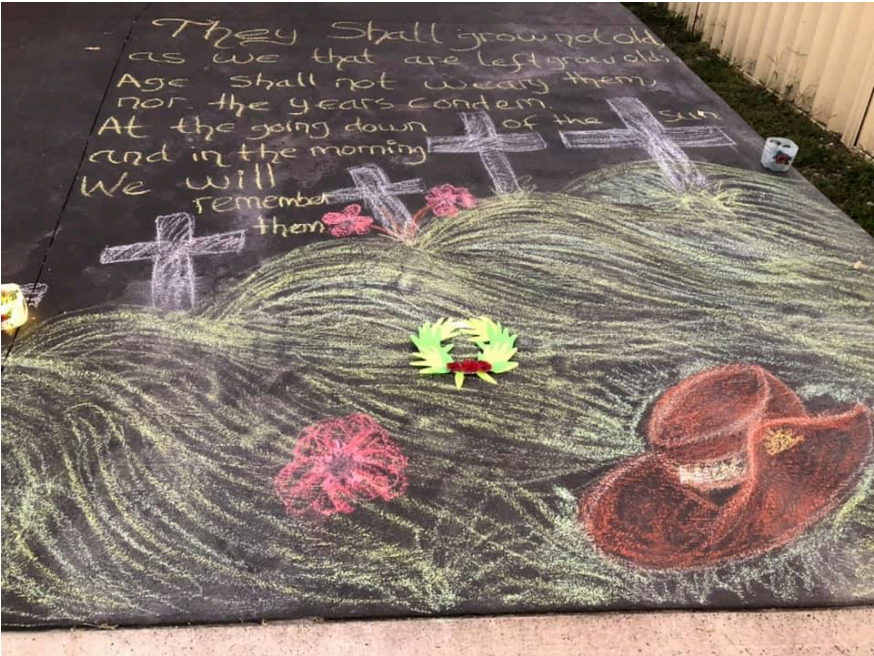 They Shall grow not old
as we that are left grow old,
Age shall not weary them,
nor the years condem.
At the going down of the Sun
and in the morning
We will
remember
them